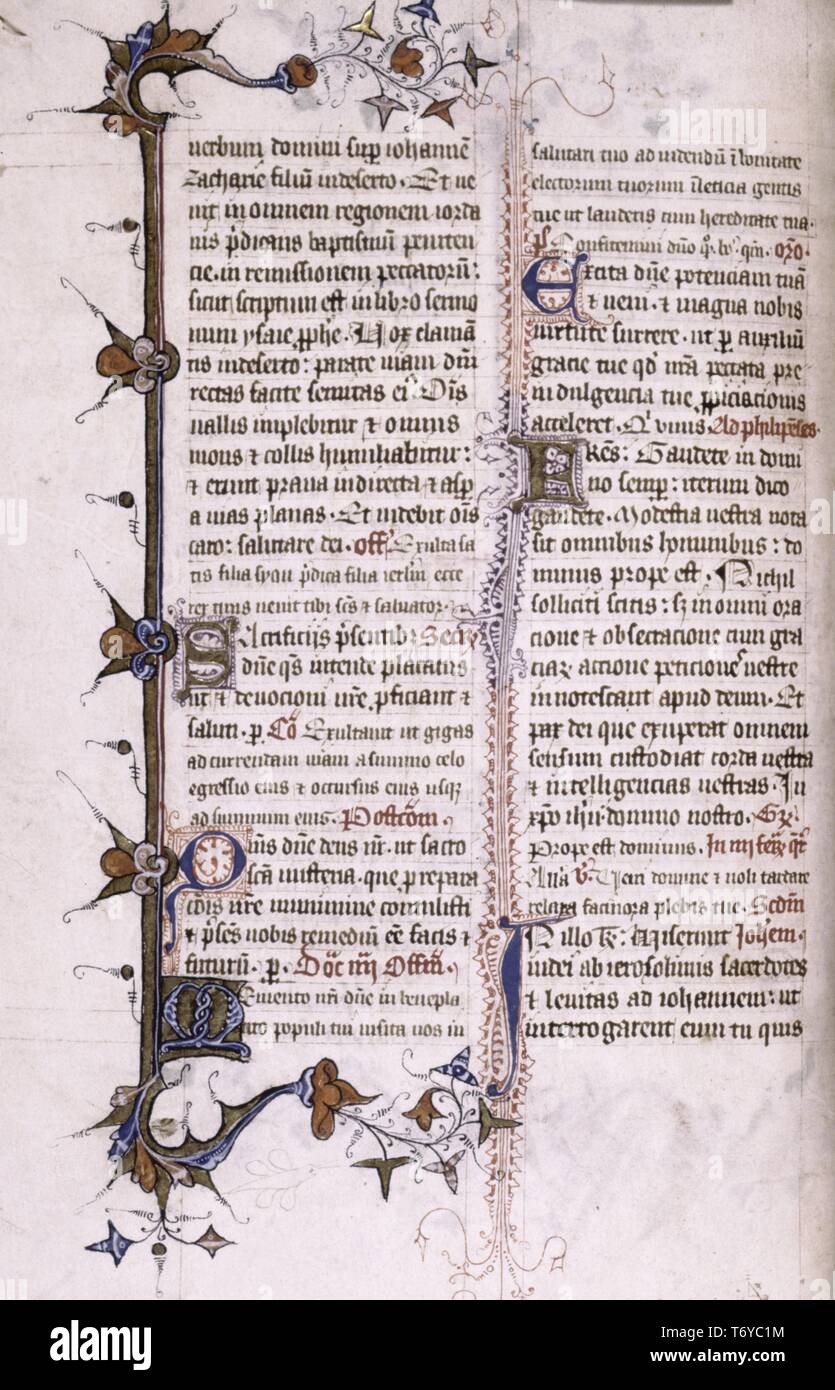 verbum domini sup iohannē
Zacharie filiū indeserto. Et ue
nit in omnem regionem iorda
nis p̄dicans baptismū peniten
cie. in remissionem peccatorū:
sicut scriptum est in libro sermo
num ysaie p̄phe. Vox claman
tis indeserto: parate uiam dn̄i
rectas facite semitas eiꝰ. Om̄is
uallis implebitur ⁊ omnis
mons ⁊ collis humiliabitur:
⁊ erunt praua indirecta ⁊ asp
a uias planas. Et uidebit om̄is
caro: salutare dei. Off Exulta sa
tis filia syon p̄dica filia ierl̄m ecce
rex tuus uenit tibi sc̄s ⁊ saluator.
Sacrificijs p̄sentibꝫ Secꝝ
dn̄e qs̄ intende placatus
ut ⁊ deuocioni nr̄e, ꝓficiant ⁊
saluti. ꝑ. Cō Exultauit ut gigas
ad currendam uiam a summo celo
egressio eius ⁊ occursus eius usqꝫ
ad summum eius. Postcom̄.
Quis dn̄e deus nr̄. ut sacro
sc̄a misteria. que ꝓ repara
cōnis nr̄e munimine contulisti
⁊ p̄sēs nobis remediū eē facis ⁊
futurū. ꝑ. Doc̄ iiij Offm̄.
Memento nr̄i dn̄e in benepla
cito populi tui uisita nos in
salutari tuo ad uidendū ī bonitate
electorum tuorum ī leticia gentis
tue ut lauderis cum hereditate tua.
ps Confitemini dn̄o q̄. boꝰ. qm̄. or̄o.
Excita dn̄e potenciam tuā
⁊ ueni. ⁊ magna nobis
uirtute surrere. ut ꝑ auxiliū
gracie tue qd̓ nr̄a peccata pre
indulgencia tue ꝓpiciacionis
acceleret. Qͥ uiuis Ad philipēses.
Fr̄es: Gaudete in domi
no semper: iterum dico
gaudete. Modestia uestra nota
sit omnibus hominibus: do
minus prope est. Nichil
solliciti sitis: sꝫ in omni ora
cione ⁊ obsecracione cum gra
ciaꝝ accione peticiones uestre
innotescant apud deum. Et
pax dei que exuperat omnem
sensum custodiat corda uestra
⁊ intelligencias uestras. In
xp̄o ih̄u domino nostro. Gꝝ
Prope est dominus. In iiij feriꝝ q̄r
Alla V̓ Veni domine ⁊ noli tardare
relaxa facinora plebis tue. Scdm̄
In illo t̄: Miserunt Joh̄em.
iudei ab ierosolimis sacerdotes
⁊ leuitas ad iohannem: ut
interrogarent eum tu quis
alamy
alamy
Image ID: T6YC1M
www.alamy.com